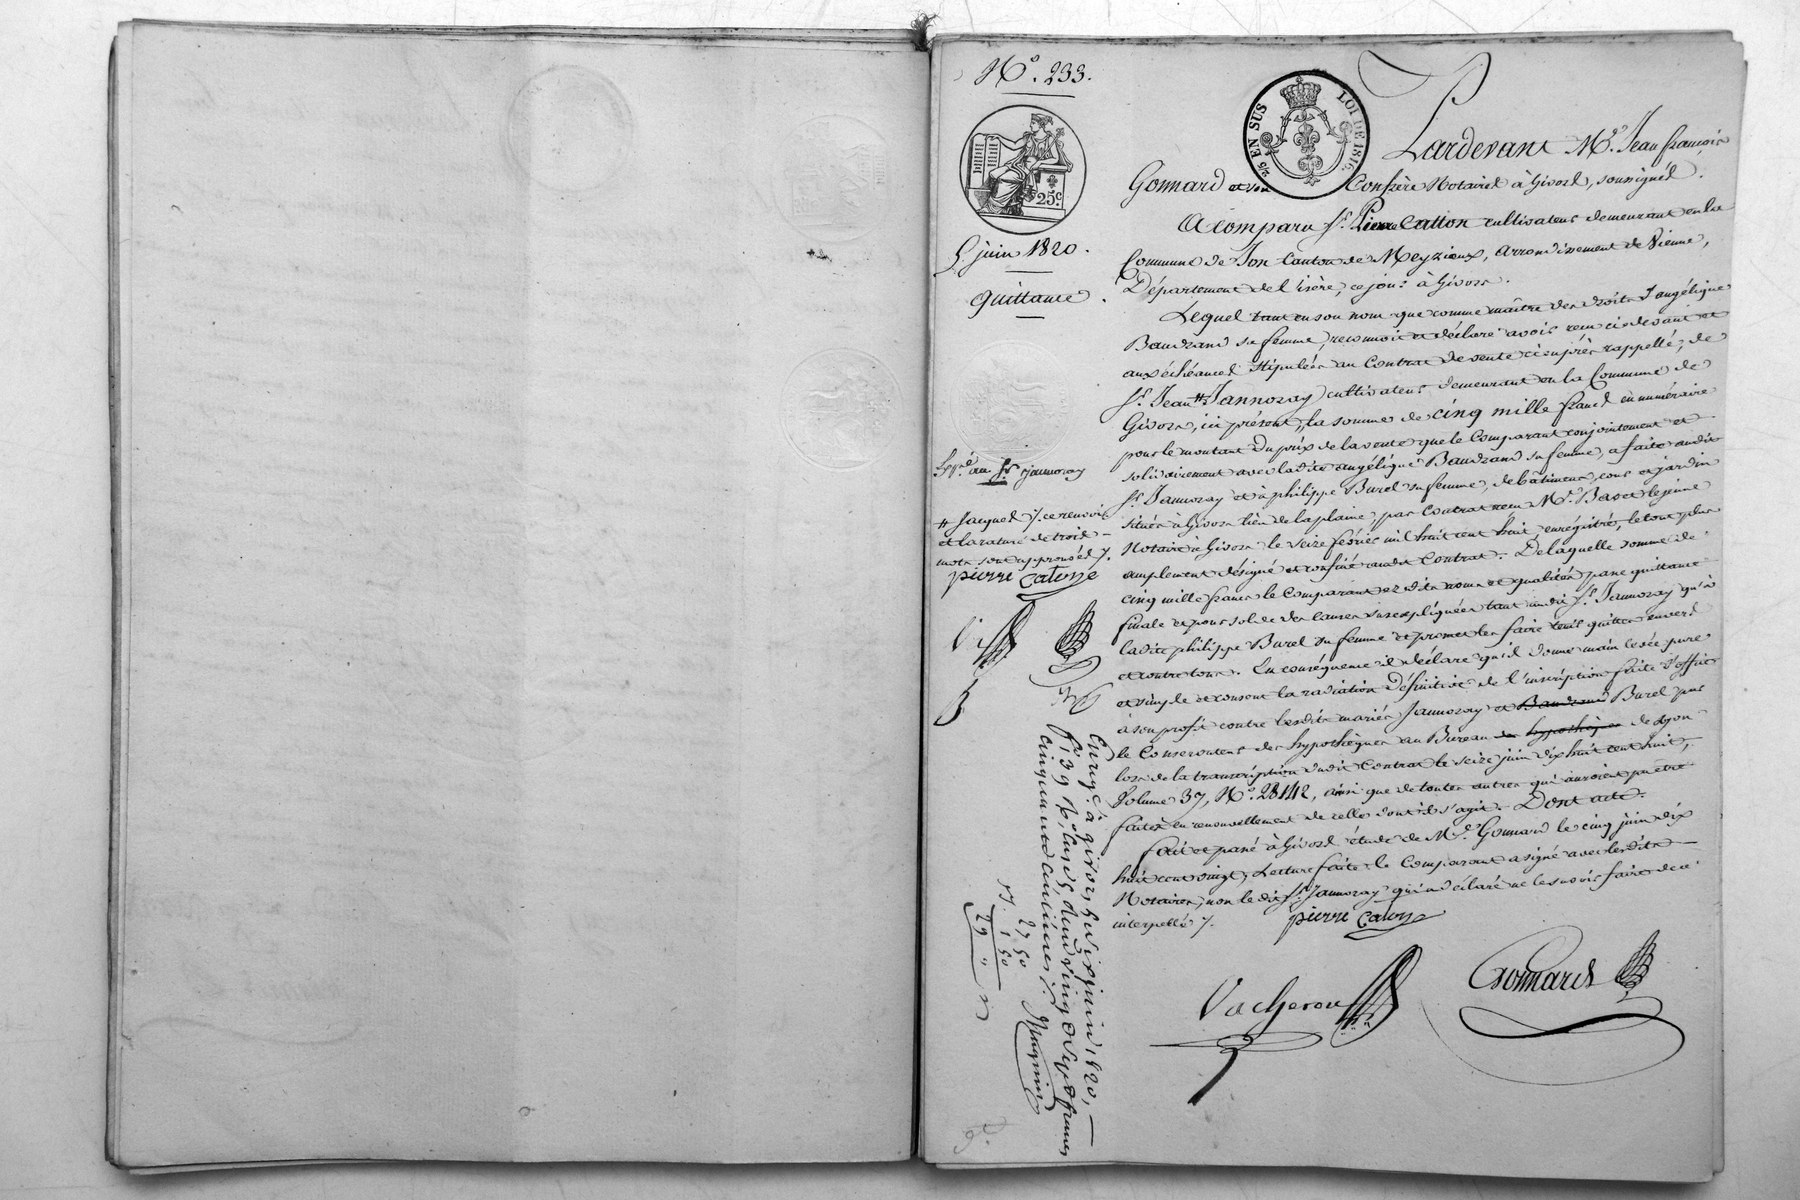 N.º 233.
2/5 EN SUS LOI DE 1816.
25c.
5. juin 1820.
quittance.
Expéd. au Sr. Jannoray
# Jacques /. ce renvoi
et la rature de trois
mots sont approuvés /.
pierre catton
Pardevant Me. Jean françois
Gonnard et son Confrère Notaires à Givors, soussignés.
A comparu Sr. Pierre Catton cultivateur demeurant en la
Commune de Jon Canton de Meyzieux, arrondissement de Vienne,
Département de l'isère, ce jour à Givors.
Lequel tant en son nom que comme maître des droits d'angélique
Baudrand sa femme, reconnoit et déclare avoir reçu ci devant et
aux échéances stipulées au Contrat de vente ci après rappellé, de
Sr. Jean # Jannoray cultivateur demeurant en la Commune de
Givors, ici présent, la somme de cinq mille francs en numéraire
pour le montant du prix de la vente que le Comparant conjointement et
solidairement avec ladite angélique Baudrand sa femme, a faite audit
Sr. Jannoray et à philippe Burel sa femme, de bâtiment, cour et jardin
situés à Givors lieu de la plaine, par Contrat reçu Me. Basset le jeune
Notaire à Givors le seize fevrier mil huit cent huit, enregistré, le tout plus
amplement désigné et confiné audit Contrat. De laquelle somme de
cinq mille francs le Comparant ez dits noms et qualités passe quittance
finale et pour solde des causes susexpliquées tant audit Sr. Jannoray qu'à
ladite philippe Burel sa femme et promet les faire tenir quittes envers
et contre tous. En conséquence il déclare qu'il donne main levée pure
et simple et consent la radiation définitive de l'inscription faite d'office
à son profit contre lesdits mariés Jannoray et Baudrand Burel par
le Conservateur des hypothèques au Bureau des hypothèques de Lyon
lors de la transcription dudit Contrat le seize juin dix huit cent huit,
Volume 37, N.º 28112, ainsi que de toutes autres qui auroient pu être
faites en renouvellement de celle dont il s'agit. Dont acte.
fait et passé à Givors étude de Me. Gonnard le cinq juin dix
huit cent vingt, Lecture faite le Comparant a signé avec lesdits
Notaires, non ledit Sr. Jannoray qui a déclaré ne le savoir faire de ce
interpellé /.
pierre catton
Vacheron
Gonnard
Enregé. à givors, le six juin 1820,
fº 39 Vº, Cases, deux vingt sept francs
cinquante centimes /. Magnin
27 50
1 50
29 "